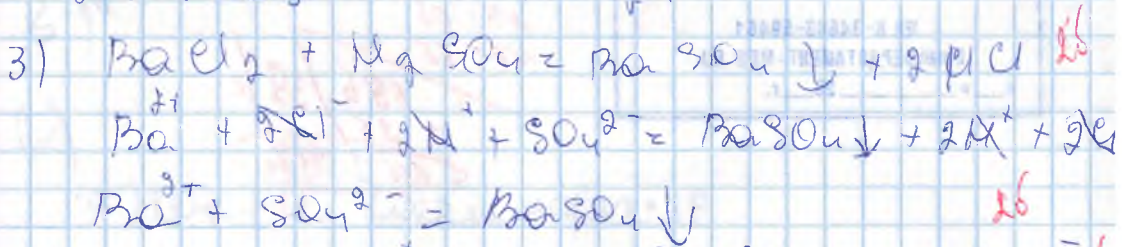 3) BaCl₂ + H₂SO₄ = BaSO₄↓ + 2HCl 2б
Ba²⁺ + 2Cl⁻ + 2H⁺ + SO₄²⁻ = BaSO₄↓ + 2H⁺ + 2Cl
Ba²⁺ + SO₄²⁻ = BaSO₄↓ 2б